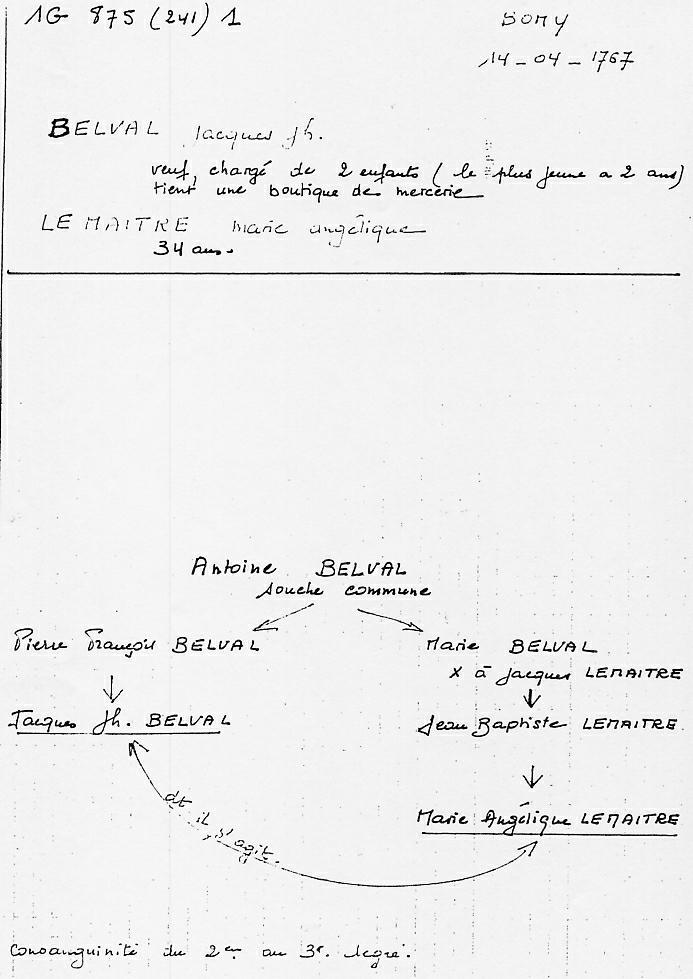 1G 875 (241) 1
BOMY
14-04-1767
BELVAL Jacques Jh.
veuf, chargé de 2 enfants ( le plus jeune a 2 ans)
tient une boutique de mercerie
LE MAITRE marie angélique
34 ans.
Antoine BELVAL
souche commune
Pierre François BELVAL
Marie BELVAL
x à Jacques LEMAITRE
Jacques Jh. BELVAL
Jean Baptiste LEMAITRE
Marie Angélique LEMAITRE
dt il s'agit.
Consanguinité du 2em au 3e. degré.